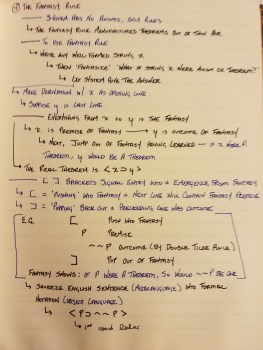 ④ The Fantasy Rule
System Has No Axioms, Only Rules
↳ The Fantasy Rule Manufactures Theorems Out of Thin Air
To Use Fantasy Rule
↳ Write Any Well-Formed String x
↳ Then 'Fantasize' "What if String x Were Axiom or Theorem?"
↳ Let System Give The Answer
↳ Make Derivation w/ x As Opening Line
↳ Suppose y Is Last Line
Everything From x to y Is The Fantasy
↳ x Is Premise of Fantasy → y Is Outcome of Fantasy
↳ Next, Jump Out of Fantasy Having Learned — If x Were A
Theorem, y Would Be A Theorem
↳ The Real Theorem Is <x⊃y>
[ ] Brackets Signal Entry Into & Emergence From Fantasy
↳ [ = 'Pushing' Into Fantasy & Next Line Will Contain Fantasy Premise
↳ ] = 'Popping' Back Out & Preceding Line Was Outcome
E.G. [ Push Into Fantasy
P Premise
~~P Outcome (By Double Tilde Rule)
] Pop Out of Fantasy
Fantasy Shows: If P Were A Theorem, So Would ~~P Be One
↳ Squeeze English Sentence (Metalanguage) Into Formal
Notation (Object Language)
↳ <P⊃~~P>